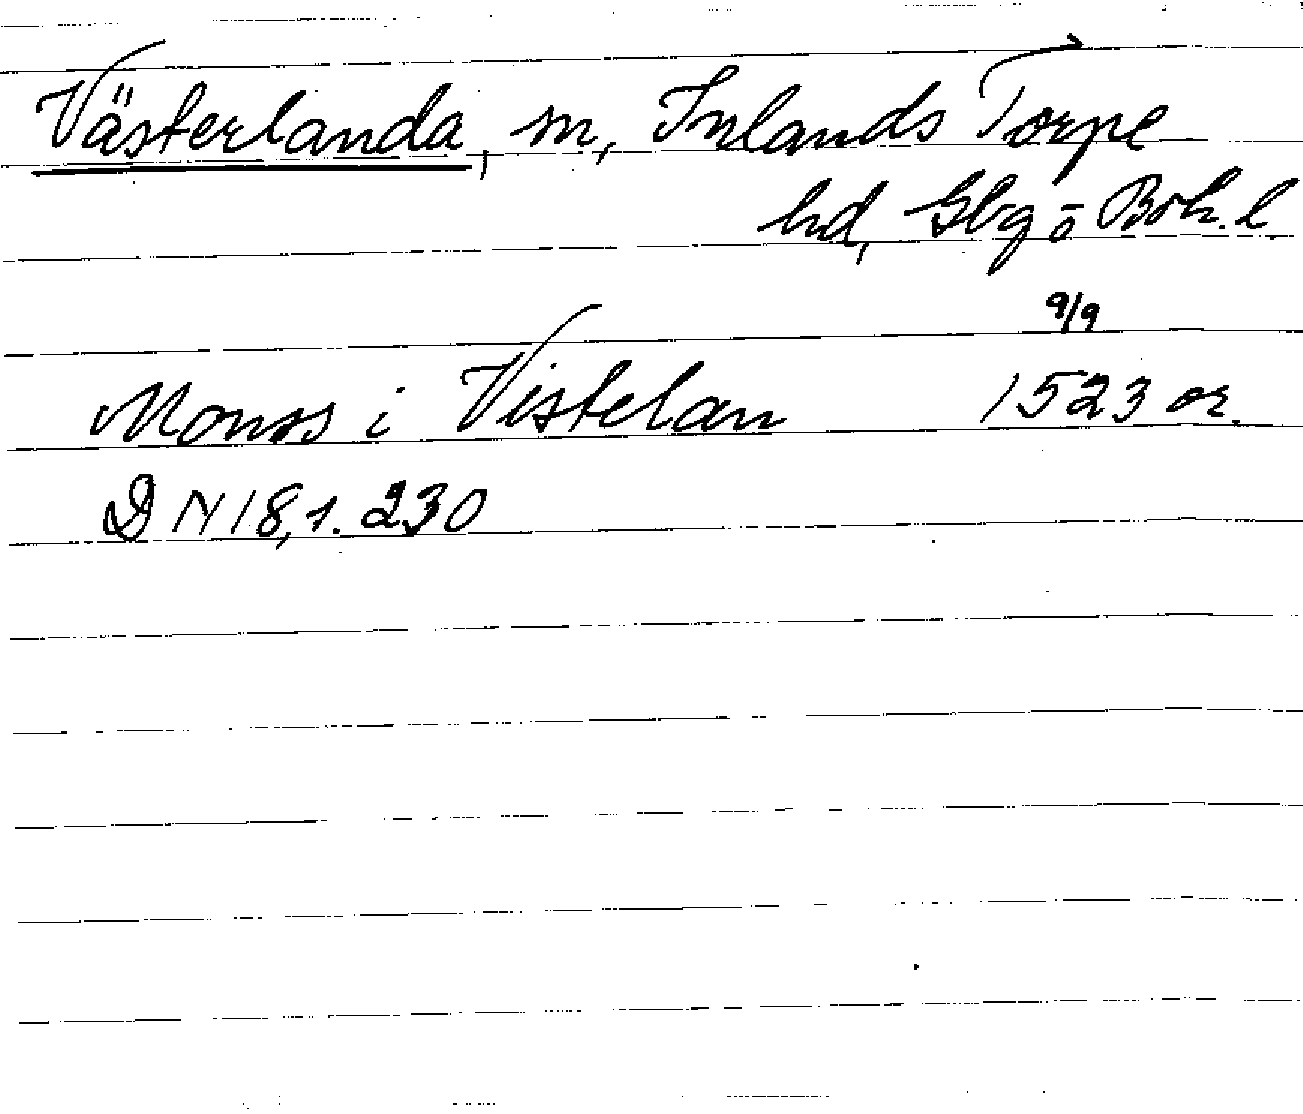 Västerlanda, sn, Inlands Torpe
hd, Gbg o Boh. l.
9/9
Monss i Vistelan 1523 or.
DN 18,1. 230